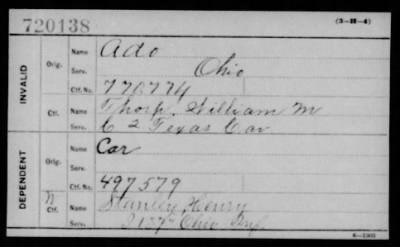 720138
(3-H-4)
INVALID
Orig.
Name Ado
Serv. Ohio
Ctf. No. 770774
Ctf.
Name Thorp, William M
Serv. C 2 Texas Cav
DEPENDENT
Orig.
Name Car
Serv.
Ctf. No. 497579
Ctf.
Name Stanley, Henry
Ohio Inf
6-1903